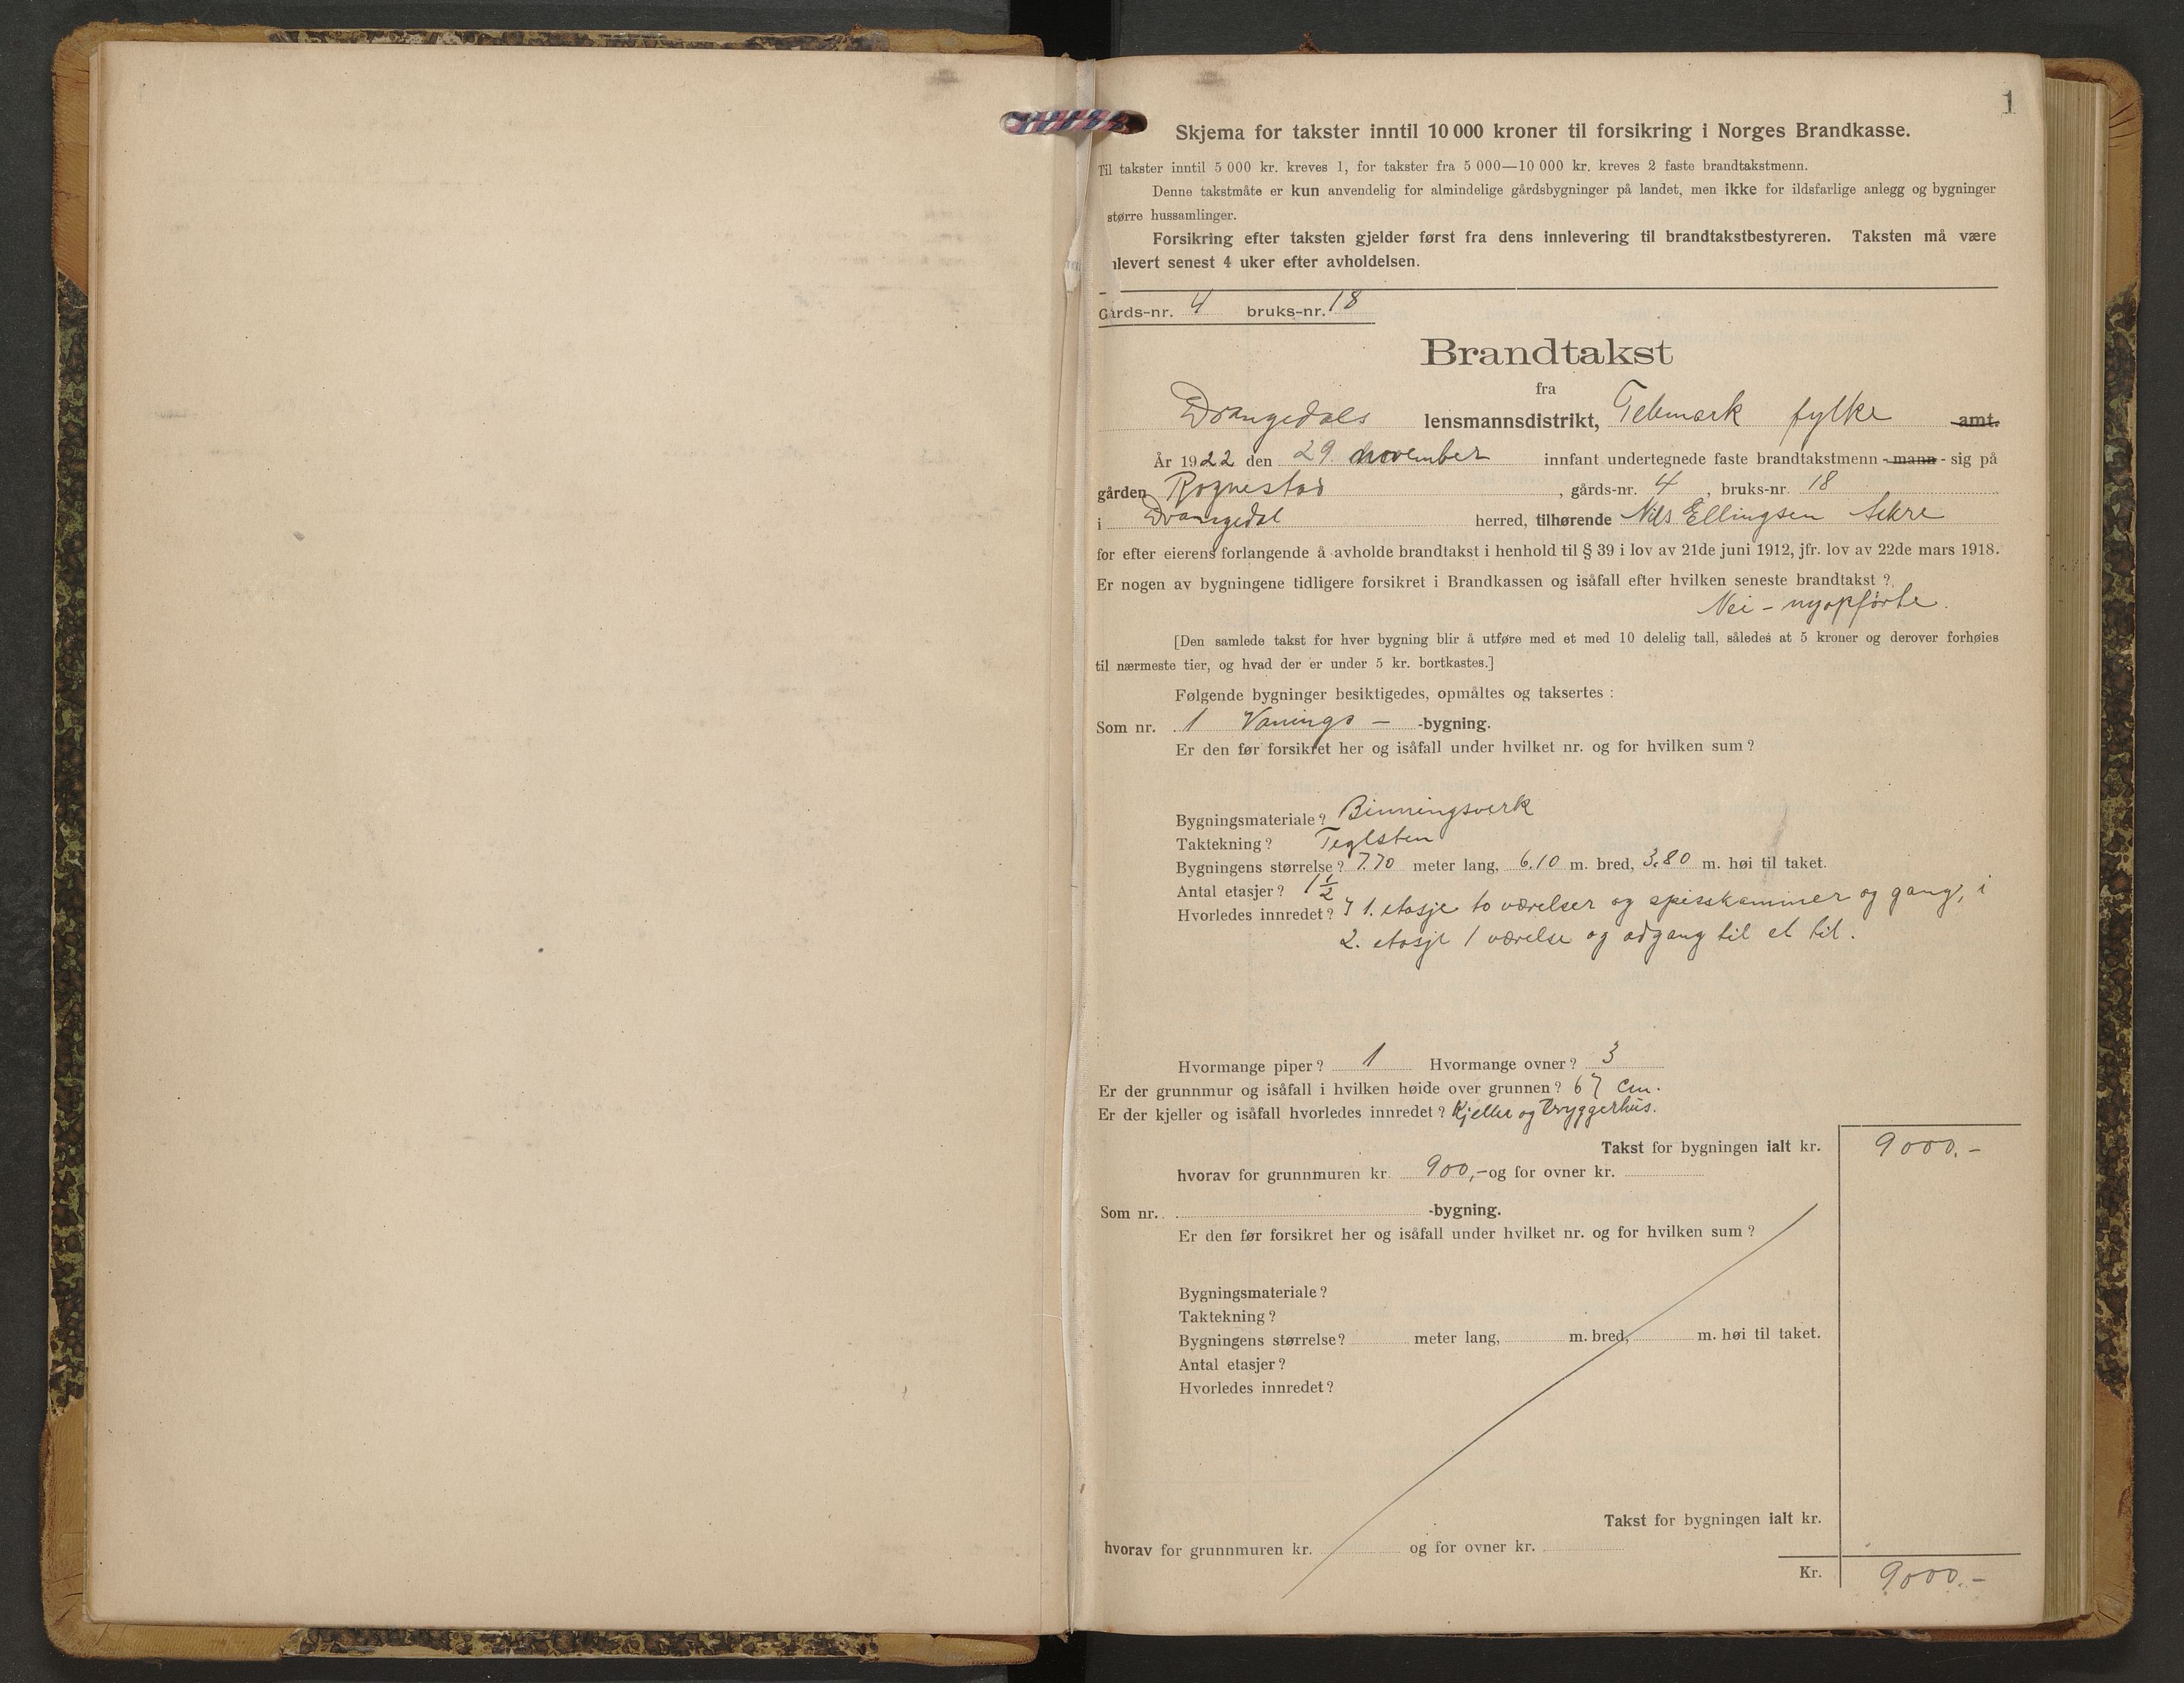 1
Skjema for takster inntil 10 000 kroner til forsikring i Norges Brandkasse.
Til takster inntil 5 000 kr. kreves 1, for takster fra 5 000—10 000 kr. kreves 2 faste brandtakstmenn.
Denne takstmåte er kun anvendelig for almindelige gårdsbygninger på landet, men ikke for ildsfarlige anlegg og bygninger
større hussamlinger.
Forsikring efter taksten gjelder først fra dens innlevering til brandtakstbestyreren. Taksten må være
nlevert senest 4 uker efter avholdelsen.
Gårds-nr. 4 bruks-nr. 18
Brandtakst
fra
Drangedals lensmannsdistrikt, Telemark fylke amt.
År 1922 den 29. november innfant undertegnede faste brandtakstmenn - mann - sig på
gården Rognestad, gårds-nr. 4, bruks-nr. 18
i Drangedal herred, tilhørende Nils Ellingsen
for efter eierens forlangende å avholde brandtakst i henhold til § 39 i lov av 21de juni 1912, jfr. lov av 22de mars 1918.
Er nogen av bygningene tidligere forsikret i Brandkassen og isåfall efter hvilken seneste brandtakst?
Nei - nyopførte.
[Den samlede takst for hver bygning blir å utføre med et med 10 delelig tall, således at 5 kroner og derover forhøies
til nærmeste tier, og hvad der er under 5 kr. bortkastes.]
Følgende bygninger besiktigedes, opmåltes og taksertes :
Som nr. 1 Vånings - -bygning.
Er den før forsikret her og isåfall under hvilket nr. og for hvilken sum?
Bygningsmateriale? Binningsverk
Taktekning? Teglsten
Bygningens størrelse? 7.70 meter lang, 6.10 m. bred, 3.80 m. høi til taket.
Antal etasjer? 1 1/2
Hvorledes innredet? I 1. etasje to værelser og spisskammer og gang, i
2. etasje 1 værelse og adgang til et til.
Hvormange piper? 1 Hvormange ovner? 3
Er der grunnmur og isåfall i hvilken høide over grunnen? 67 cm.
Er der kjeller og isåfall hvorledes innredet? Kjeller og bryggerhus.
Takst for bygningen ialt kr. 9000.-
hvorav for grunnmuren kr. 900,- og for ovner kr.
Som nr. -bygning.
Er den før forsikret her og isåfall under hvilket nr. og for hvilken sum?
Bygningsmateriale?
Taktekning?
Bygningens størrelse? meter lang, m. bred, m. høi til taket.
Antal etasjer?
Hvorledes innredet?
Takst for bygningen ialt kr.
hvorav for grunnmuren kr. og for ovner kr.
Kr. 9000.-